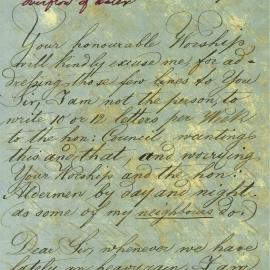 overflow of water
Your honourable Worship
will kindly excuse me, for ad-
dressing those few lines to You
Sir, I am not the person, to
write 10 or 12 letters per Week
to the hon: Council, wanting
this and that, and worrying
Your Worship and the hon:
Aldermen by day and night
as some of my neighbours do.
Dear Sir, whenever we have
lately any heavy rain, I am